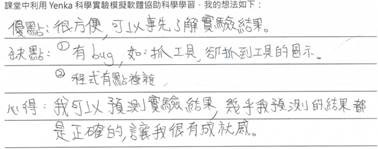 課堂中利用 Yenka 科學實驗模擬軟體協助科學學習，我的想法如下：
優點：很方便，可以事先了解實驗結果。
缺點：①有bug，如：抓工具，卻抓到工具的圖示。
②程式有點複雜
心得：我可以預測實驗結果，幾乎我預測的結果都
是正確的，讓我很有成就感。